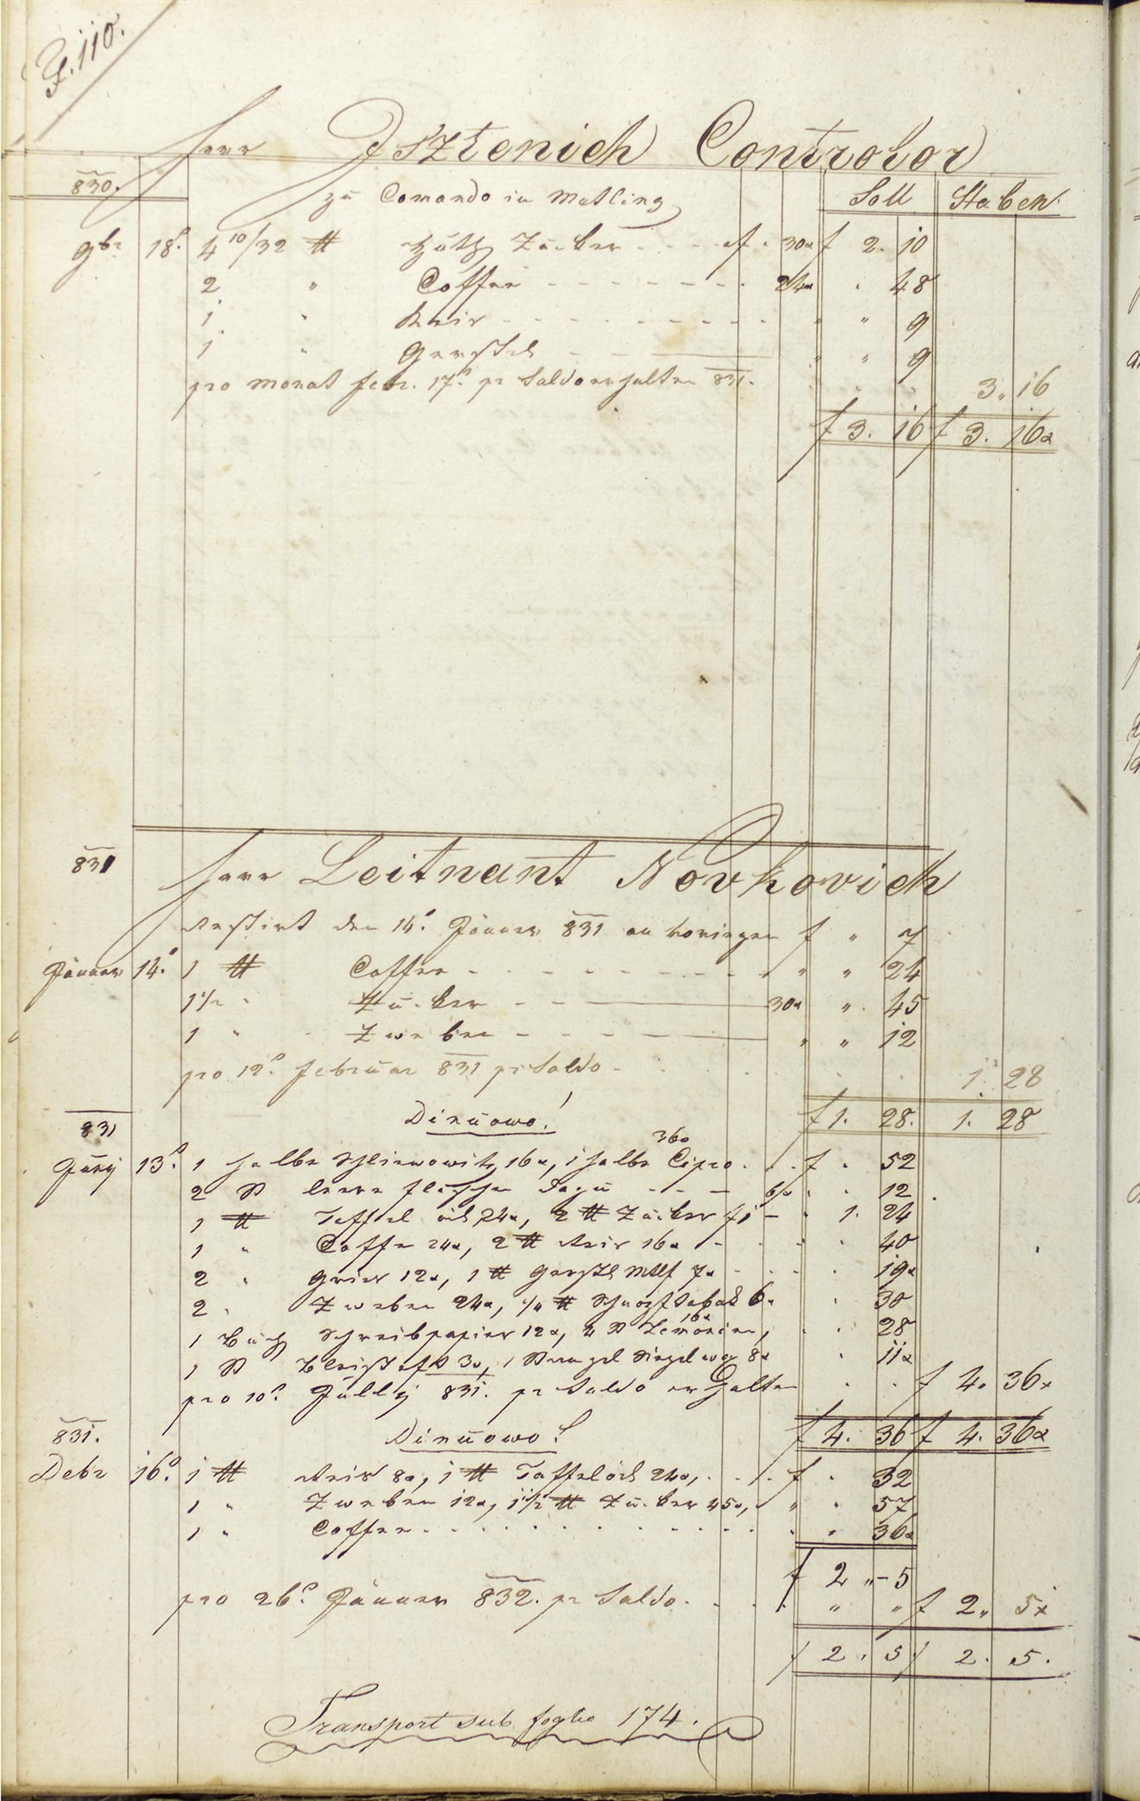 F. 110.
Herr Isztenich Controlor
830. zu Comando in Metling Soll Haben
9br 18. 4 10/32 ℔ Huth Zucker f. 30x f 2. 10
2 " Coffee 24x " 48
1 " Reis " " 9
1 " Gerstel " " 9
pro Monat Febr. 17. pr Saldo erhalten 831. 3. 16
f 3. 16 f 3. 16x
831 Herr Leitnant Novkovich
Restirt den 14. Jänner 831 an vorigen f " 7
Jänner 14. 1 ℔ Coffee " " 24
1 1/2 " Zucker 30x " 45
1 " Zweben " " 12
pro 12. Februar 831 pr Saldo 1. 28
f 1. 28. 1. 28
831 Dinuowo!
Juny 13. 1 halbe Schliewowitz 16x, 1 halbe Cipro 36x f . 52
2 St leere Flaschen dazu 6x . 12
1 ℔ Taffel öhl 24x, 2 ℔ Zucker f 1 1. 24
1 " Coffe 24x, 2 ℔ Reis 16x . 40
2 " Gries 12x, 1 ℔ Gerstl 7x 19x
2 " Zweben 24x, 1/4 ℔ Schnopftabak 6x 30
1 Buch Schreibpapier 12x, 4 St Lemonien, 16x 28
1 St Bleistift 3x, 1 Stangel Siegelwax 8x 11x
pro 10. Jully 831. pr Saldo erhalten f 4. 36x
f 4. 36 f 4. 36x
831. Dinuowo!
Debr 16. 1 ℔ Reis 8x, 1 ℔ Taffelöhl 24x, f . 32
1 " Zweben 12x, 1 1/2 ℔ Zucker 45x, " . 57
1 " Coffee . " 36x
f 2 " - 5
pro 26. Jänner 832. pr Saldo. " " f 2 " 5x
f 2 . 5 f 2 . 5.
Transport sub foglio 174.